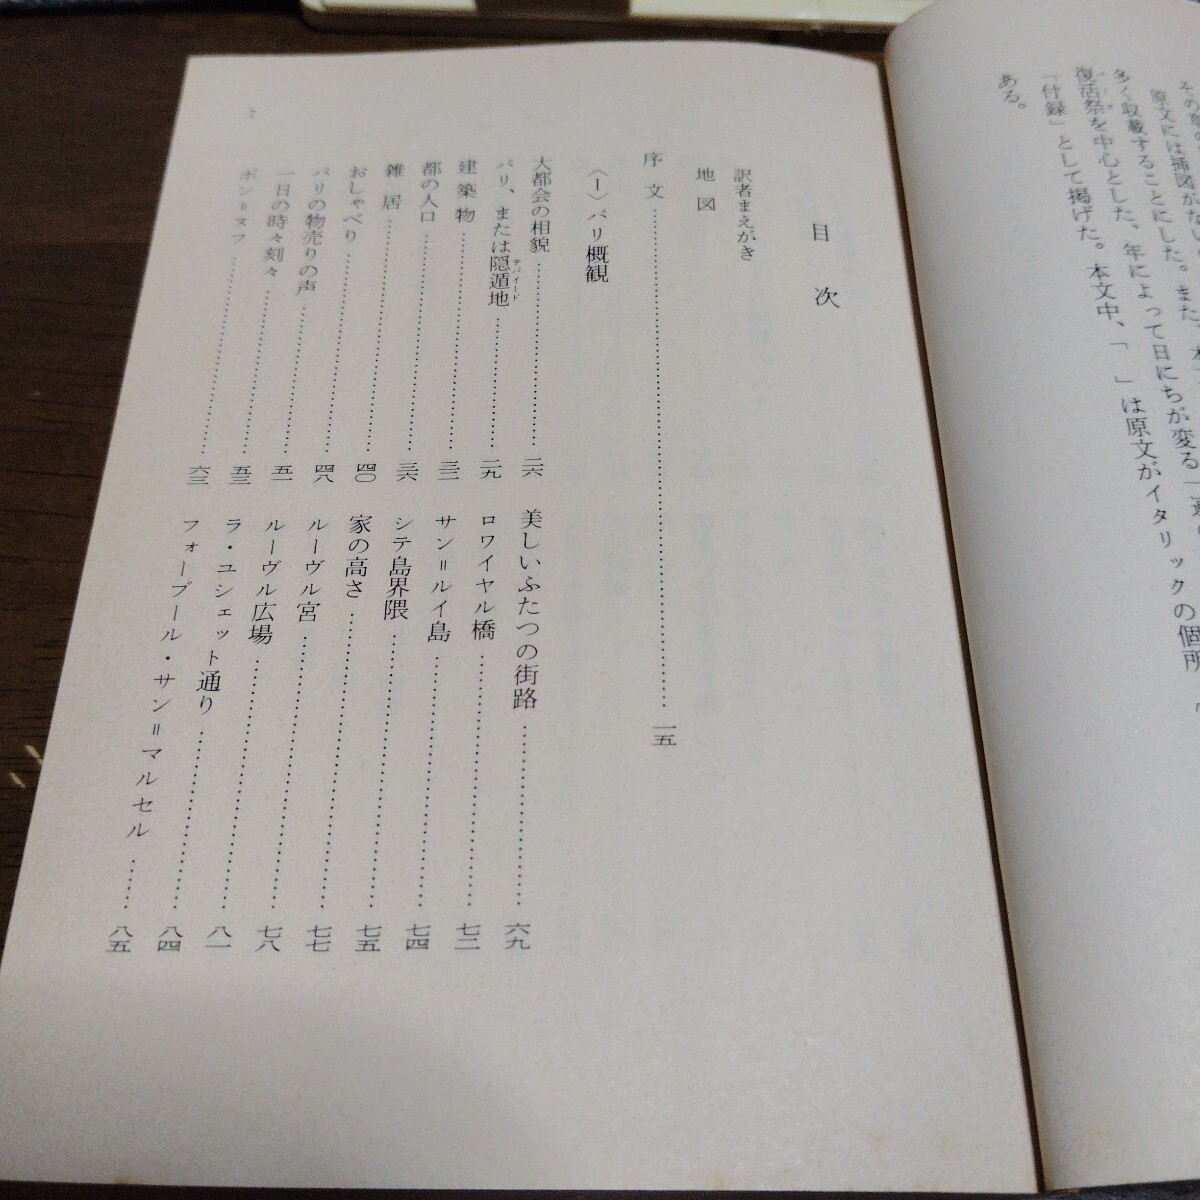 その他の
原文には挿図がない
多く収載することにした。また、本
復活祭を中心とした、年によって日にちが変る
「付録」として掲げた。本文中、「 」は原文がイタリックの個所
ある。
目次
訳者まえがき
地図
序文……一五
〈I〉パリ概観
大都会の相貌……二六
パリ、または隠遁地……二九
テバイード
建築物……三二
都の人口……三六
雑居……四〇
おしゃべり……四八
パリの物売りの声……五一
一日の時々刻々……五三
ポン＝ヌフ……六三
美しいふたつの街路……六九
ロワイヤル橋……七二
サン＝ルイ島……七四
シテ島界隈……七五
家の高さ……七七
ルーヴル宮……七八
ルーヴル広場……八一
ラ・ユシェット通り……八四
フォーブール・サン＝マルセル……八五
7